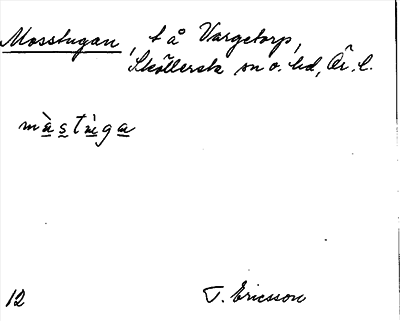 Mosstugan, t å Vargetorp,
Sköllersta sn o. hd, Ör. l.
mås̲tùga
12
T. Ericsson